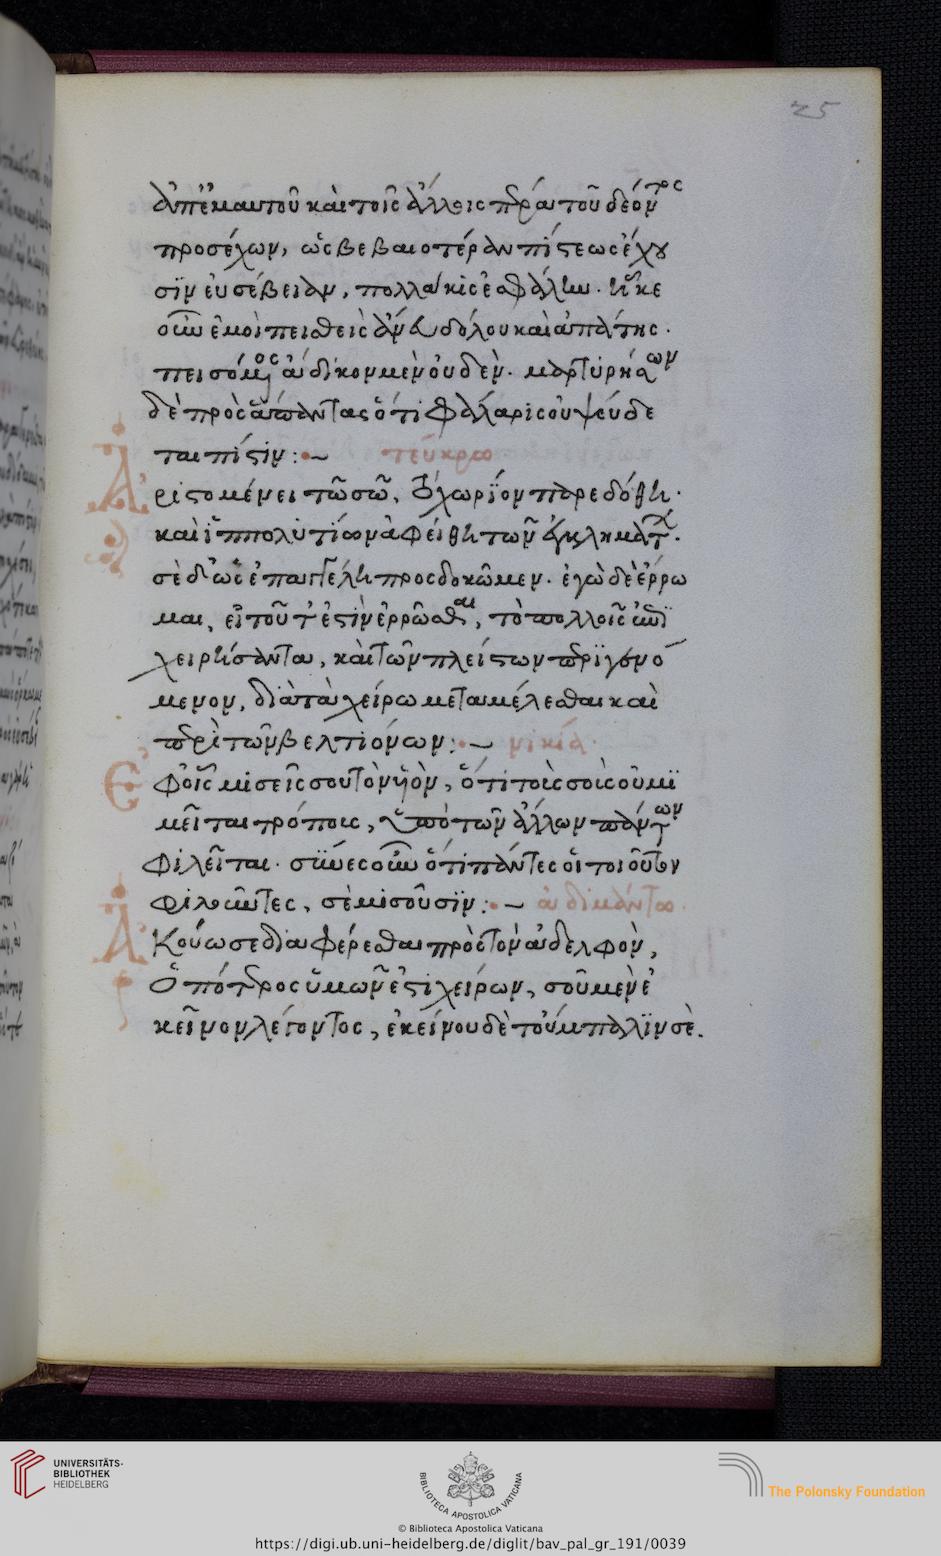 25
ἀπ' ἐμαυτοῦ καὶ τοῖς ἄλλοις πέρα τοῦ δέοντος
προσέχων, ὡς βεβαιοτέραν πίστεως ἔχου
σϊν εὐσέβειαν, πολλάκις ἐσφάλην. ἧκε
οὖν ἐμοὶ πεισθεὶς ἄνευ δόλου καὶ ἀπάτης.
πεισόμενος ἀδίκον μὲν οὐδὲν. μαρτυρήσων
δὲ πρὸς ἅπαντας ὅτι φάλαρις οὐ ψεύδε
ται πίστιν: τεύκρω
Ἀριστομένει τῶ σῶ, τὸ χωρίον παρεδόθη.
καὶ ἱππολυτίων ἀφείθη τῶν ἐγκλημάτων.
σὲ δ' ὡς ἐπαγγέλη προσδοκῶμεν. ἐγὼ δὲ ἔρρω
μαι, εἰ τοῦτ' ἐστὶν ἐρρῶσθαι, τὸ πολλοῖς
χειρίσαντα, καὶ τῶν πλείστων περϊγενό
μενον, διὰ τὰ χείρω μεταμέλεσθαι καὶ
περὶ τῶν βελτιόνων: νικία
Ἐφ' οἷς μισεῖς σου τὸν υἱὸν, ὅτι τοῖς σοῖς οὐ μϊ
μεῖται τρόποις, ὑπὸ τῶν ἄλλων πάντων
φιλεῖται. σϋνες οὖν ὅτι πάντες οἱ τοιοῦτον
φιλοῦντες, σὲ μισοῦσϊν: ἀδιμάντω
Ἀκούω σε διαφέρεσθαι πρὸς τὸν ἀδελφὸν,
ὁπότερος ὑμῶν ἐστι χείρων, σοῦ μὲν ἐ
κεῖνον λέγοντος, ἐκείνου δὲ τοὔμπαλϊν σὲ.
UNIVERSITÄTS-
BIBLIOTHEK
HEIDELBERG
BIBLIOTECA APOSTOLICA VATICANA
The Polonsky Foundation
© Biblioteca Apostolica Vaticana
https://digi.ub.uni-heidelberg.de/diglit/bav_pal_gr_191/0039